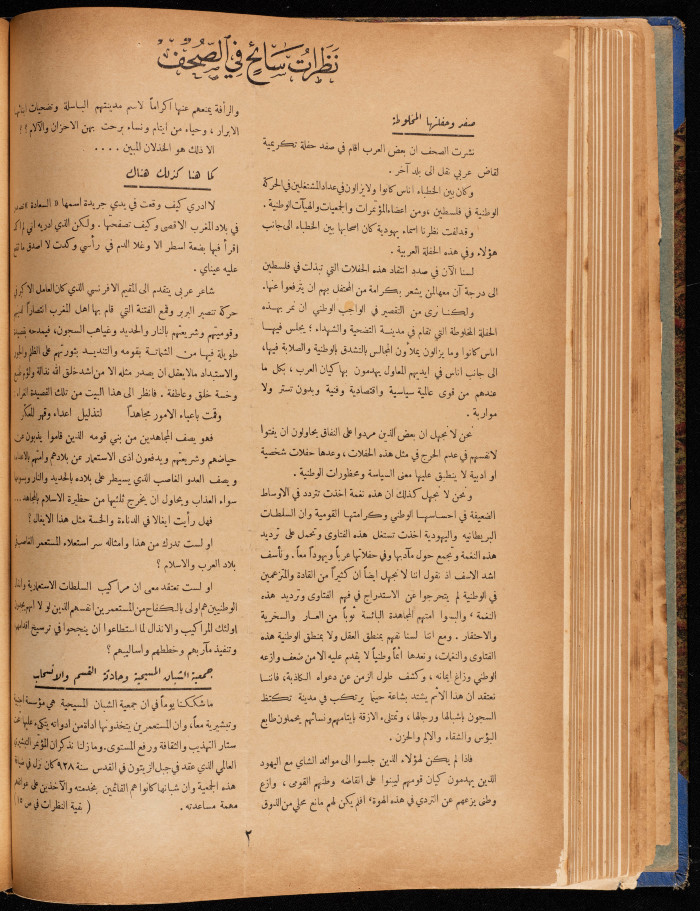 نظرات سائح في الصحف
صفد وحفلتها المخلوطة
نشرت الصحف ان بعض العرب اقام في صفد حفلة تكريمية
لقاض عربي نقل الى بلد آخر.
وكان بين الخطباء اناس كانوا ولا يزالون في عداد المشتغلين في الحركة
الوطنية في فلسطين، ومن اعضاء المؤتمرات والجمعيات والهيآت الوطنية.
وقد لفت نظرنا اسماء يهودية كان اصحابها بين الخطباء الى جانب
هؤلاء. وفي هذه الحفلة العربية.
لسنا الآن في صدد انتقاد هذه الحفلات التي تبذلت في فلسطين
الى درجة أن معها لمن يشعر بكرامة من المحتفل بهم ان يترفعوا عنها.
ولكننا نرى من التقصير في الواجب الوطني ان نمر بهذه
الحفلة المخلوطة التي تقام في مدينة التضحية والشهداء؛ يجلس فيها
اناس كانوا وما يزالون يملأون المجالس بالتشدق بالوطنية والصلابة فيها،
الى جانب اناس في ايديهم المعاول يهدمون بها كيان العرب، بكل ما
عندهم من قوى عالية سياسية واقتصادية وفنية وبدون تستر ولا
مواربة.
نحن لا نجهل ان بعض الذين مردوا على النفاق يحاولون ان يفتوا
لانفسهم في عدم الحرج في مثل هذه الحفلات، وعدها حفلات شخصية
او ادبية لا ينطبق عليها معنى السياسة ومحظورات الوطنية.
ونحن لا نجهل كذلك ان هذه نغمة اخذت تتردد في الاوساط
الضعيفة في احساسها الوطني وكرامتها القومية وان السلطات
البريطانيه واليهودية اخذت تستغل هذه الفتاوى وتحمل على ترديد
هذه النغمة وتجمع حول مآدبها وفي حفلاتها عرباً ويهوداً معاً. ونأسف
اشد الاسف اذ نقول اننا لا نجهل ايضاً ان كثيراً من القادة والمتزعمين
في الوطنية لم يتحرجوا عن الاستدراج في فهم الفتاوى وترديد هذه
النغمة، والبسوا امتهم المجاهدة البائسة ثوباً من العار والسخرية
والاحتقار. ومع اننا لسنا نفهم بمنطق العقل ولا بمنطق الوطنية هذه
الفتاوى والنغمات، ونعدها اثماً وطنياً لا يقدم عليه الا من ضعف وازعه
الوطني وزاغ ايمانه، وكشف طول الزمن عن دعواه الكاذبة، فاننا
نعتقد ان هذا الاثم يشتد بشاعة حينما يرتكب في مدينة تكتظ
السجون باشبالها ورجالها، وتمتلىء الازقة بايتامهم ونسائهم يحملون طابع
البؤس والشقاء والالم والحزن.
فاذا لم يكن لهؤلاء الذين جلسوا الى موائد الشاي مع اليهود
الذين يهدمون كيان قومهم ليبنوا على انقاضه وطنهم القومى، وازع
وطنى يزعهم عن التردي في هذه الهوة؛ افلم يكن لهم مانع محلي من الذوق
والرأفة يمنعهم عنها اكراماً لاسم مدينتهم الباسلة وتضحيات ابنائها
الابرار، وحياء من ايتام ونساء برحت بهن الاحزان والآلام؟!
الا ذلك هو الخذلان المبين....
كما هنا كذلك هناك
لا ادري كيف وقعت في يدي جريدة اسمها « السعادة » تصدر
في بلاد المغرب الاقصى وكيف تصفحتها. ولكن الذي ادريه اني لم اكد
اقرأ فيها بضعة اسطر الا وغلا الدم في رأسي وكدت لا اصدق ما تقع
عليه عيناي.
شاعر عربي يتقدم الى المقيم الافرنسي الذي كان العامل الاكبر في
حركة تنصير البربر وقمع الفتنة التي قام بها اهل المغرب انتصاراً لدينهم
وقوميتهم وشريعتهم بالنار والحديد وغياهب السجون، فيمدحه بقصيدة
طويلة فيها من الشماتة بقومه والتنديد بثورتهم على الظلم والجور
والاستبداد مالايعقل ان يصدر مثله الا من اشد خلق الله نذالة ولؤم طبع
وخسة خلق وعاطفة. فانظر الى هذا البيت من تلك القصيدة
وقمت باعباء الامور مجاهداً لتذليل اعداء وقهر
فهو يصف المجاهدين من بني قومه الذين قاموا يذبون عن
حياضهم وشريعتهم ويدفعون اذى الاستعمار عن بلادهم وامتهم بالاعداء،
ويصف العدو الغاصب الذي يسيطر على بلاده بالحديد والنار ويسومهم
سواء العذاب ويحاول ان يخرج ثلثيها من حظيرة الاسلام بالمجاهد...
فهل رأيت ايغالا في الدناءة والخسة مثل هذا الايغال؟
او لست تدرك من هذا وامثاله سر استعلاء المستعمر الغاصب في
بلاد العرب والاسلام؟
او لست تعتقد معى ان مراكيب السلطات الاستعمارية
الوطنيين هم اولى بالكفاح من المستعمرين انفسهم الذين لو لا انهم يجدون
اولئك المراكيب والانذال لما استطاعوا ان ينجحوا في ترسيخ اقدامهم
وتنفيذ مآربهم وخططهم واساليبهم؟
جمعية الشبان المسيحية وحادثة القسم والانسحاب
ما شككنا يوماً في ان جمعية الشبان المسيحية هي مؤسسة اجنبية
وتبشيرية معاً، وان المستعمرين يتخذونها اداة من ادواته يتكىء عليها تحت
ستار التهذيب والثقافة ورفع المستوى. وما زلنا نذكر ان المؤتمر التبشيري
العالمي الذي عقد في جبل الزيتون في القدس سنة ٩٢٨ كان نزل في ضيافة
هذه الجمعية وان شبانها كانوا هم القائمين بخدمته والآخذين على عواتقهم
مهمة مساعدته. ( بقية النظرات في ص ١٥ )
٢